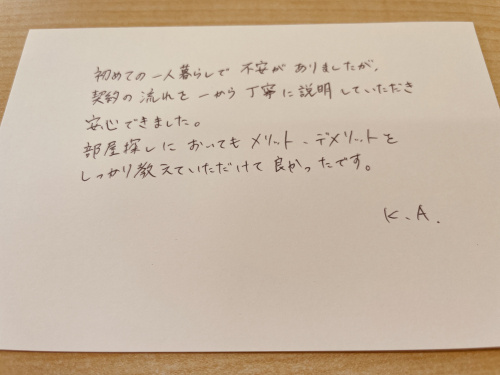 初めての一人暮らしで不安がありましたが、
契約の流れを一から丁寧に説明していただき
安心できました。
部屋探しにおいてもメリット、デメリットを
しっかり教えていただけて良かったです。
K.A.